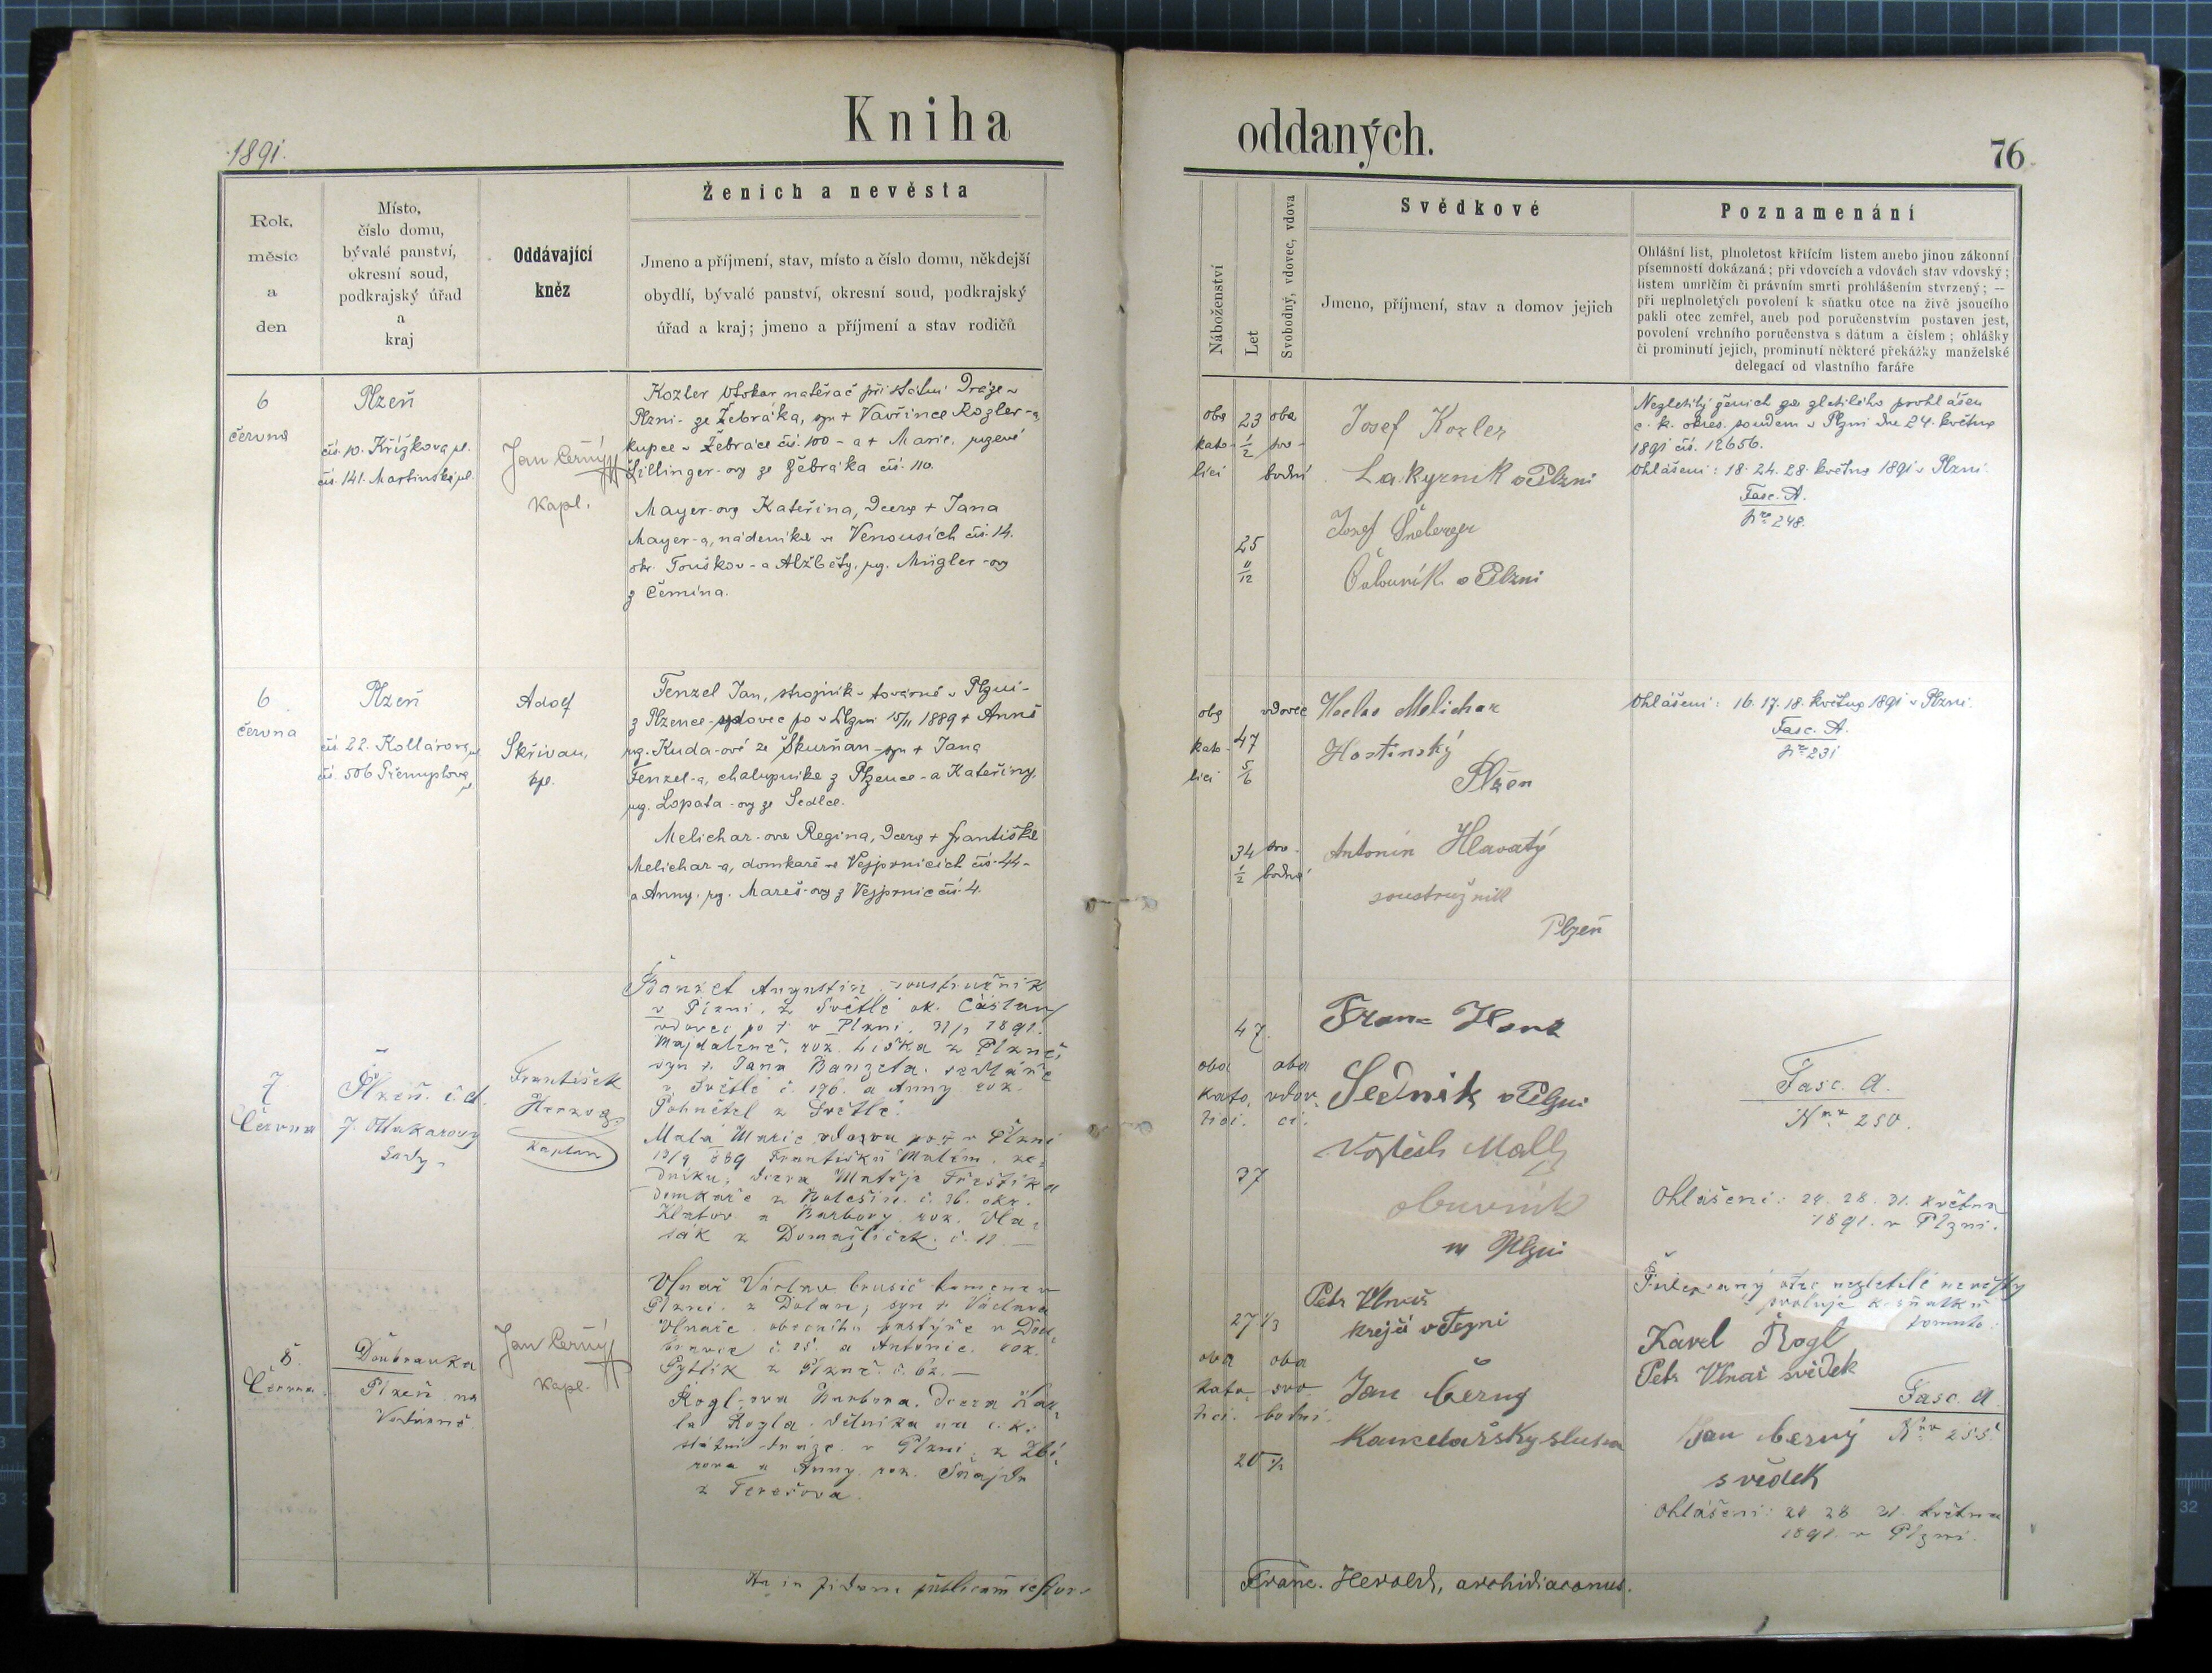 Kniha
oddaných.
1891.
76
Rok,
měsíc
a
den
Místo,
číslo domu,
bývalé panství,
okresní soud,
podkrajský úřad
a
kraj
Oddávající
kněz
Ženich a nevěsta
Jmeno a příjmení, stav, místo a číslo domu, někdejší
obydlí, bývalé panství, okresní soud, podkrajský
úřad a kraj; jmeno a příjmení a stav rodičů
Náboženství
Let
Svobodný, vdovec, vdova
Svědkové
Jmeno, příjmení, stav a domov jejich
Poznamenání
Ohlášní list, plnoletost křticím listem anebo jinou zákonní
písemností dokázaná; při vdovcích a vdovách stav vdovský;
listem umrlčím či právním smrti prohlášením stvrzený; —
při neplnoletých povolení k sňatku otce na živě jsoucího
pakli otec zemřel, aneb pod poručenstvím postaven jest,
povolení vrchního poručenstva s dátum a číslem; ohlášky
či prominutí jejich, prominutí některé překážky manželské
delegací od vlastního faráře
6
června
Plzeň
čís. 10. Křížkova ul.
čís. 141. Martinská ul.
Jan Černý
kapl.
Kozler Otokar natěrač při státní Dráze v
Plzni - ze Žebráka, syn + Vavřince Kozler-a,
kupce v Žebráce čís. 100 - a + Marie, rozené
Šillinger-ovy ze Žebráka čís. 110.
Mayer-ova Kateřina, Dcera + Jana
Mayer-a, nádeníka ve Venousích čís. 14.
okr. Touškov - a Alžběty, roz. Mügler-ovy
z Čemína.
oba
kato-
líci
23
1/2
oba
svo-
bodní
25
11/12
Josef Kozler
Lakyrník v Plzni
Josef Šneberger
Čalouník v Plzni
Nezletilý ženich za zletilého prohlášen
c. k. okres. soudem v Plzni dne 24. května
1891 čís. 12656.
Ohlášení: 18. 24. 28. května 1891 v Plzni.
Fasc. A.
Nro 248.
6
června
Plzeň
čís. 22. Kollárova ul.
čís. 506 Přemyslova ul.
Adolf
Skřivan,
kpl.
Fenzel Jan, strojník v továrně v Plzni -
z Plzence - vdovec po v Plzni 15/11 1889 + Anně
roz. Kuda-ové ze Škurňan - syn + Jana
Fenzel-a, chalupníka z Plzence - a Kateřiny,
roz. Lopata-ovy ze Sedlce.
Melichar-ova Regina, Dcera + Františka
Melichar-a, domkaře ve Vejprnicích čís. 44 -
a Anny, roz. Mareš-ovy z Vejprnic čís. 4.
oba
kato-
líci
47
5/6
vdovec
34
1/2
svo-
bodná
Melichar
Hostinský
Plzen
Antonín Hlavatý
soustružník
Plzeň
Ohlášení: 16. 17. 18. května 1891 v Plzni.
Fasc. A.
Nro 231
7
Června
Plzeň. č. d.
7.
Sady.
František
Herzog
kaplan
Banzet Augustin soustružník
v Plzni, z Světlé ok. Čáslav,
vdovec po + v Plzni 31/3 1891.
Majdaleně, roz. Liška z Plzně,
syn + Jana Banzeta
v Světlé č. 176. a Anny roz.
Pohnětel z Světlé.
Malá Marie, vdova po + v Plzni
Františku Malém, ze-
dníku, dcera Matěje
domkaře z Bolešin. č. 36. okr.
Klatov a Barbory, roz. Vla-
sák z Domažliček. č. 11. —
47.
oba
kato-
líci.
oba
vdov-
ci.
37
Franc
Sedník v Plzni
Vojtěch Malý
obuvník
v Plzni
Fasc. A.
Nro 250.
Ohlášení: 24. 28. 31. května
1891. v Plzni.
8.
Června.
Doubravka
Plzeň na
Vodárně
Jan Černý
kapl.
Vlnař Václav brusič kamene v
Plzni. z Dolan, syn + Václava
Vlnaře, obecního pastýře v Dou-
bravce č. 25. a Antonie. roz.
Pytlík z Plzně. č. 62. —
Rogl-ova Barbora. Dcera Kar-
la Rogla. dělníka na c. k.
státní dráze v Plzni, z Zbi-
rova a Anny, roz. Švajda
z Terešova.
27 1/3
oba
kato-
líci.
oba
svo-
bodní.
20 1/2
Petr Vlnař
krejčí v Plzni
Jan Černý
Kancelařský sluha
otec nezletilé nevěsty
svoluje k sňatku
tomuto.
Karel Rogl
Petr Vlnař svědek
Fasc. A.
Nro 255.
Jan Černý
svědek
Ohlášení: 24 28 31. května
1891. v Plzni.
Franc. Herold, archidiaconus.